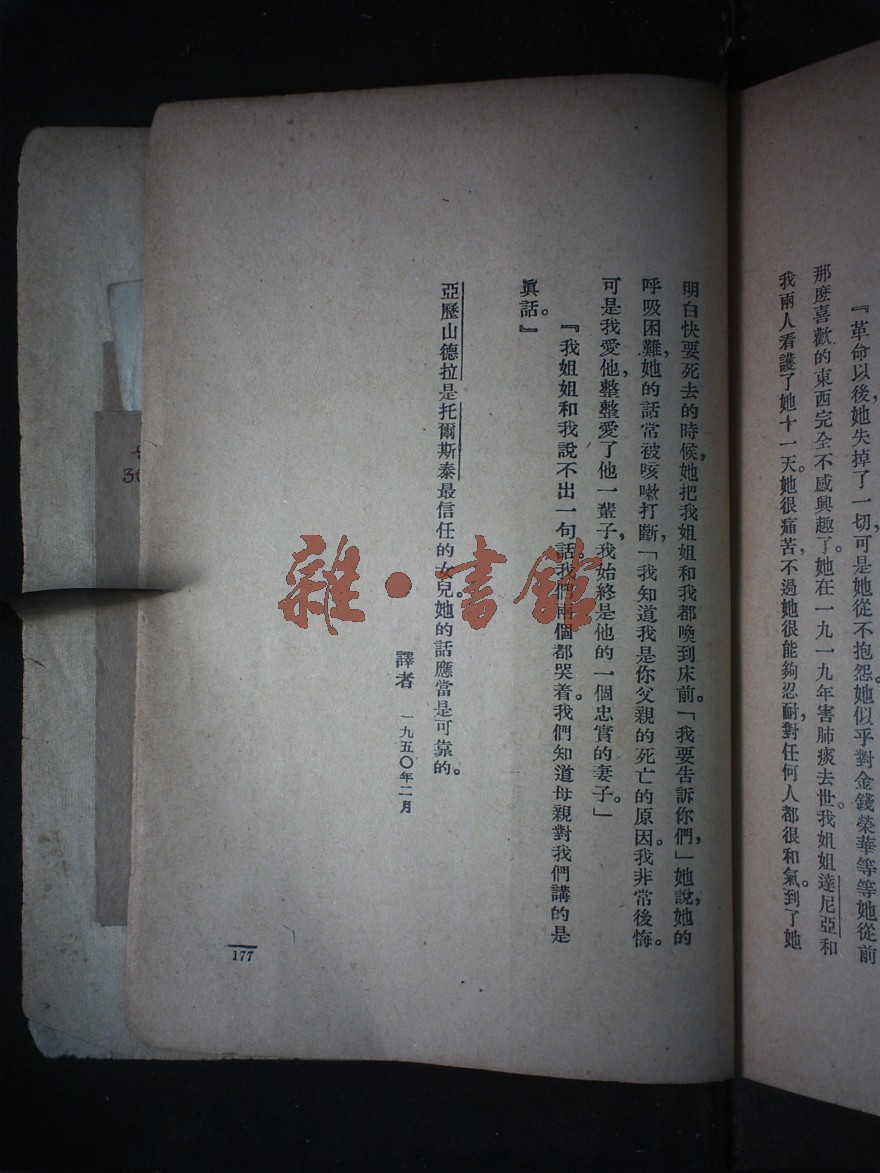 『革命以後，她失掉了一切，可是她從不抱怨。她似乎對金錢榮華等等她從前
那麼喜歡的東西完全不感興趣了。她在一九一九年害肺痰去世。我姐姐達尼亞和
我兩人看護了她十一天。她很痛苦，不過她很能夠忍耐，對任何人都很和氣。到了她
明白快要死去的時候，她把我姐姐和我都喚到床前。「我要告訴你們，」她說，她的
呼吸困難，她的話常被咳嗽打斷，「我知道我是你父親的死亡的原因。我非常後悔。
可是我愛他，整整愛了他一輩子，我始終是他的一個忠實的妻子。」
『我姐姐和我說不出一句話。我們兩個都哭着。我們知道母親對我們講的是
眞話。』
亞歷山德拉是托爾斯泰最信任的女兒。她的話應當是可靠的。
譯者 一九五〇年二月
177
雜·書館
36